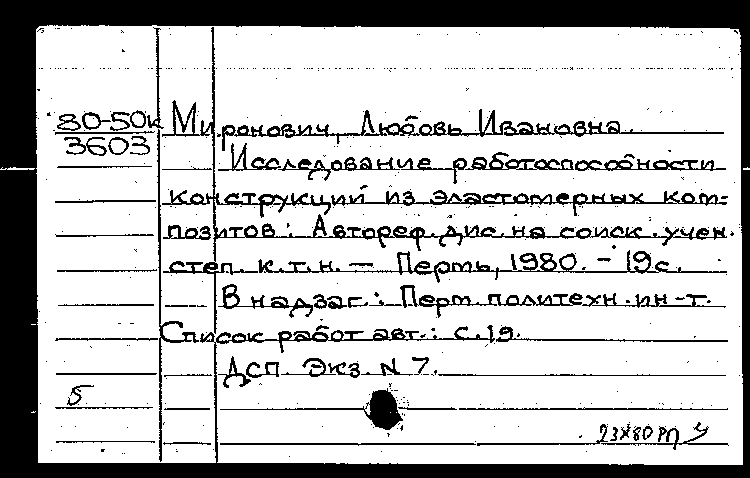 80-50к Миронович, Любовь Ивановна.
3603 Исследование работоспособности
конструкций из эластомерных ком-
позитов: Автореф. дис. на соиск. учен.
степ. к.т.н. — Пермь, 1980. - 19с.
В надзаг.: Перм. политехн. ин-т.
Список работ авт.: с.19.
ДСП. Экз. N 7.
5